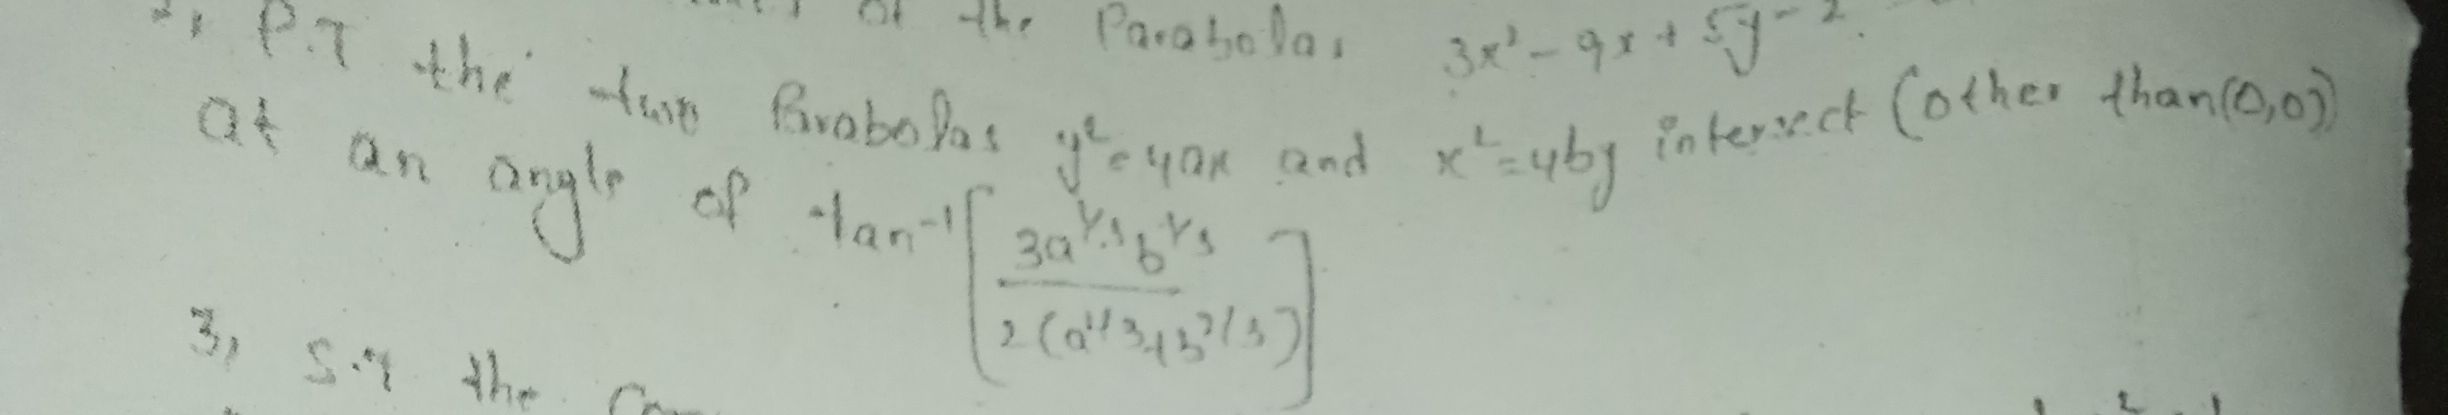 of the Parabola, 3x² - 9x + 5y - 2
P.T the two Parabolas y² = 4ax and x² = 4by intersect (other than (0,0))
at an angle of tan⁻¹ [ 3a^1/3 b^1/3 / 2(a^2/3 + b^2/3) ]
3, S.T the